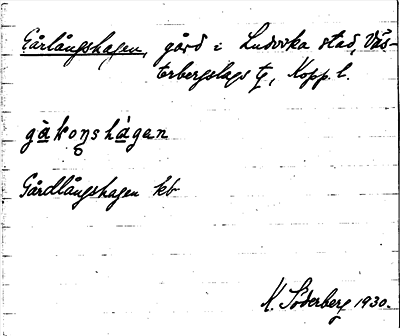 Gårlångshagen, gård i Ludvika stad, Väs-
terbergslags tg, Kopp. l.
gå̀koŋshàgan
Gårdlångshagen kb
K. Söderberg 1930.